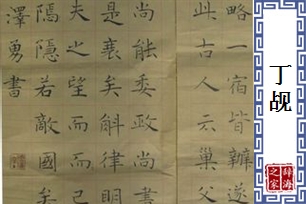 略一宿皆辦遂
此古人云巢父
尚能委政尚書
是衰矣斛律明
夫之望而已
隔隱若敵國矣
澤勇書
丁觇
辞海
之家